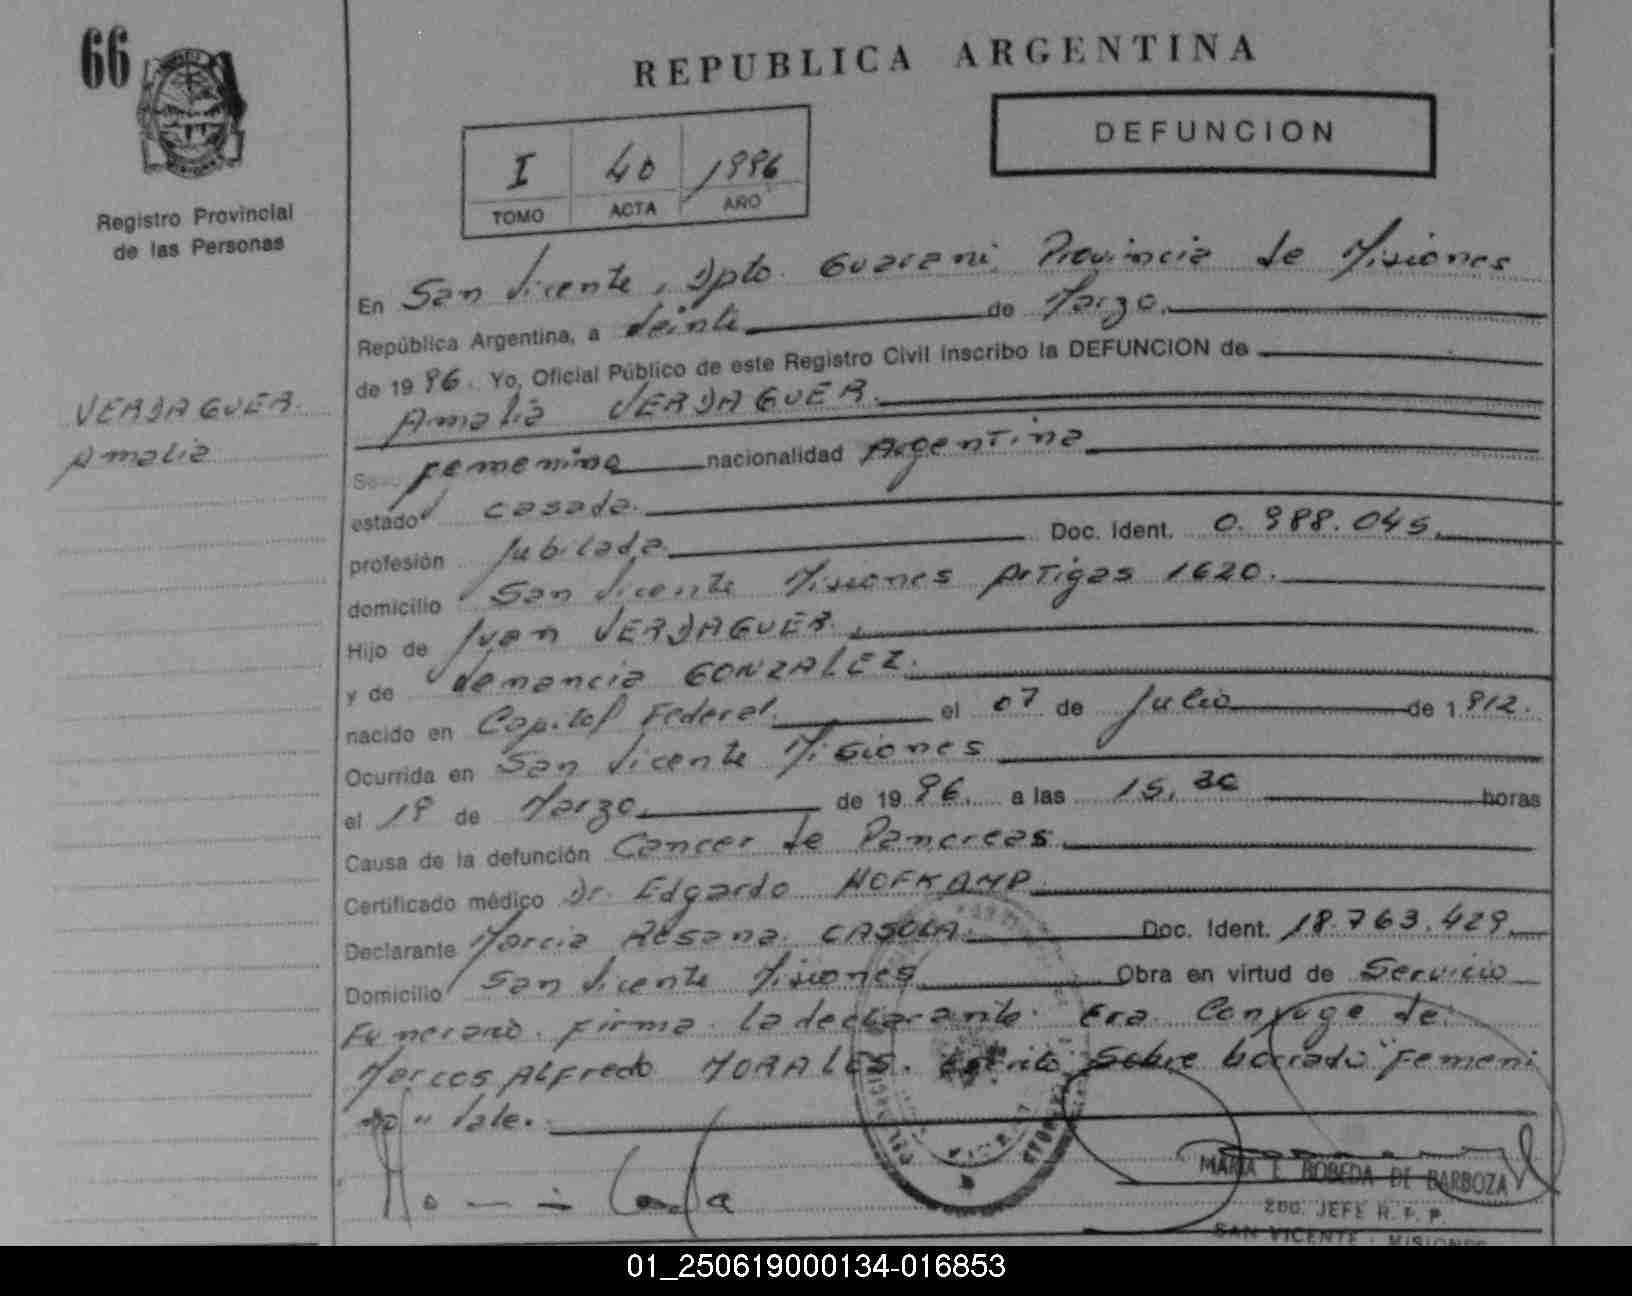 66
REPUBLICA ARGENTINA
DEFUNCION
I 40 1996
TOMO ACTA AÑO
Registro Provincial
de las Personas
VERDAGUER.
Amalia
En San Vicente, Dpto. Guarani, Provincia de Misiones
República Argentina, a Veinte de Marzo.
de 1996. Yo, Oficial Público de este Registro Civil inscribo la DEFUNCION de
Amalia VERDAGUER.
Sexo femenino nacionalidad Argentina
estado casada.
profesión Jubilada. Doc. Ident. 0.988.045.
domicilio San Vicente Misiones Artigas 1620.
Hijo de Juan VERDAGUER.
y de Venancia GONZALEZ.
nacido en Capital Federal. el 07 de Julio de 1912.
Ocurrida en San Vicente Misiones
el 19 de Marzo. de 1996. a las 15,30 horas
Causa de la defunción Cancer de Pancreas.
Certificado médico Dr. Edgardo HOFKAMP.
Declarante Marcia Rosana CASOLA. Doc. Ident. 18.763.429.
Domicilio San Vicente Misiones Obra en virtud de Servicio
Funerario. Firma la declarante. Era Conyuge de:
Marcos Alfredo MORALES. Escrito Sobre borrado "Femeni
no" Vale.
MARIA E. BOBEDA DE BARBOZA
2DO. JEFE R. P. P.
SAN VICENTE - MISIONES
01_250619000134-016853